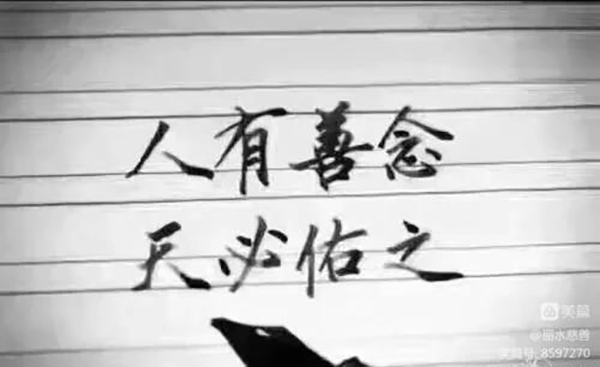 人有善念
天必佑之
美篇
@丽水慈善
美篇号:8597270